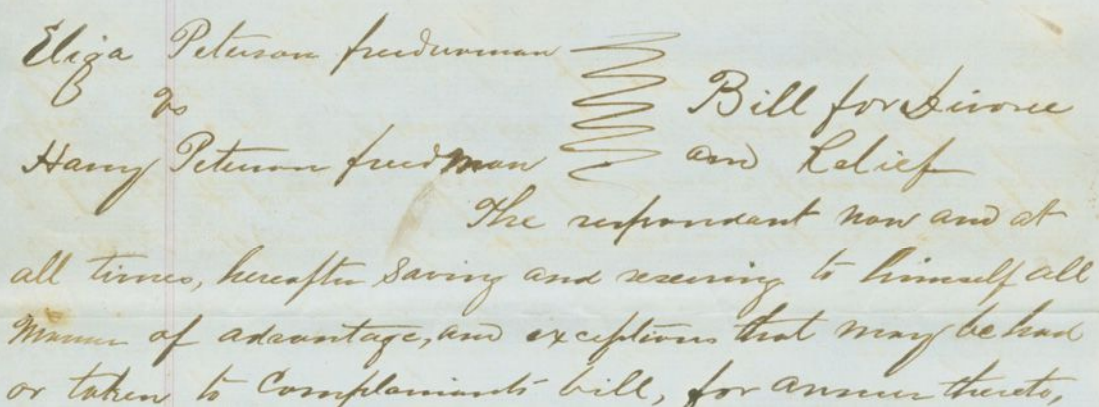 Eliza Peterson freedwoman
vs
Bill for Divorce
Harry Peterson freedman
and Relief
The respondant now and at
all times, hereafter saving and reserving to himself all
manner of advantage, and exceptions that may be had
or taken to Complainants bill, for answer thereto,